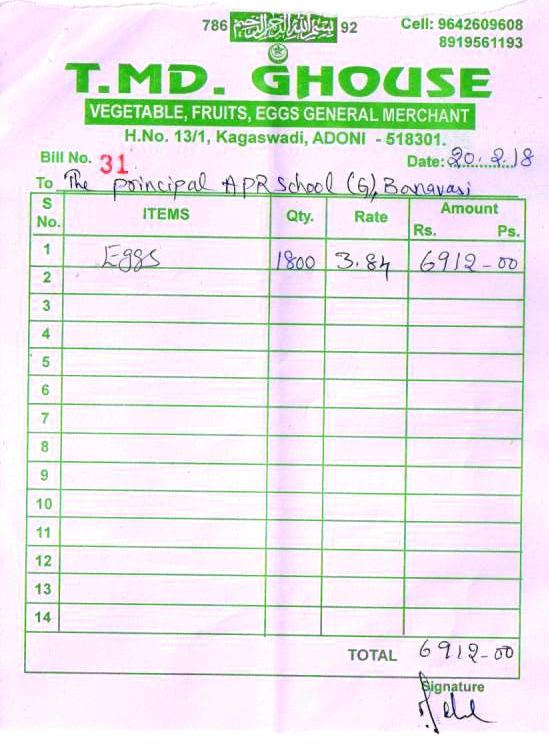 786 بسم الله الرحمن الرحيم 92
Cell: 9642609608
8919561193
T.MD. GHOUSE
VEGETABLE, FRUITS, EGGS GENERAL MERCHANT
H.No. 13/1, Kagaswadi, ADONI - 518301.
Bill No. 31 Date: 20.2.18
To The principal APR School (G), Banavasi
S No. ITEMS Qty. Rate Amount Rs. Ps.
1 Eggs 1800 3.84 6912-00
2
3
4
5
6
7
8
9
10
11
12
13
14
TOTAL 6912-00
Signature